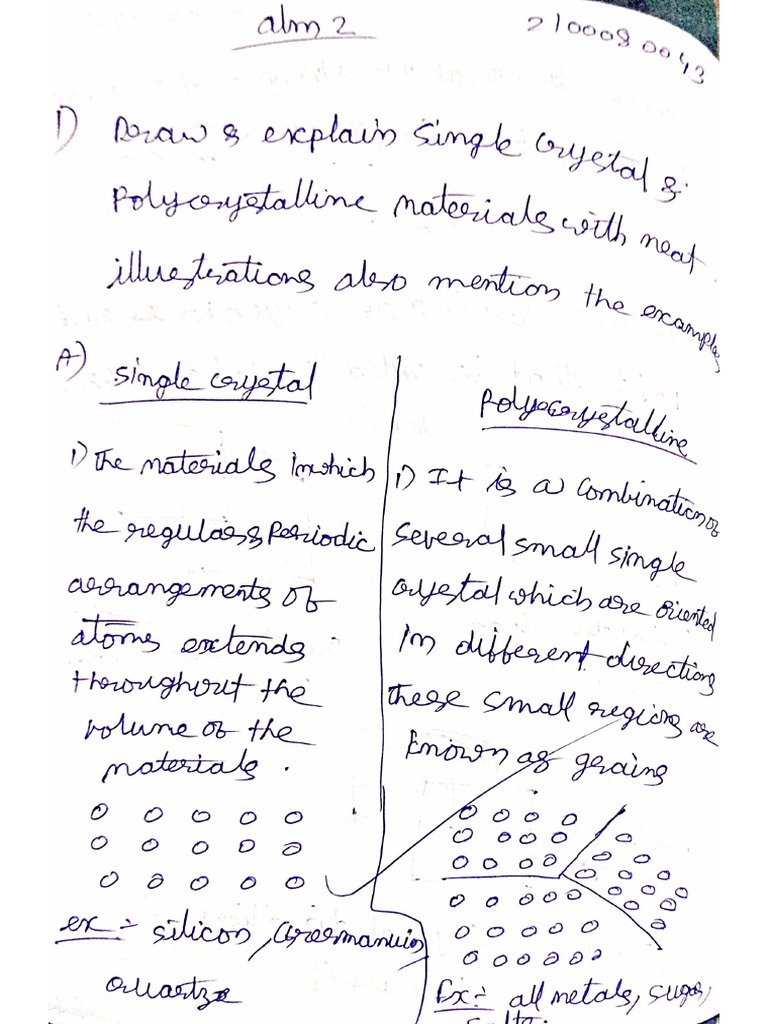 alm 2
2100080043
1) Draw & explain single crystal &
Polycrystalline materials with neat
illustrations also mention the examples
A) single crystal
1) The materials in which
the regular & periodic
arrangements of
atoms extends
throughout the
volume of the
materials.
ex:- silicon, Germanium
quartz
Polycrystalline
1) It is a combination of
several small single
crystal which are oriented
in different directions
these small regions are
known as grains
Ex:- all metals, sugar,
salts.